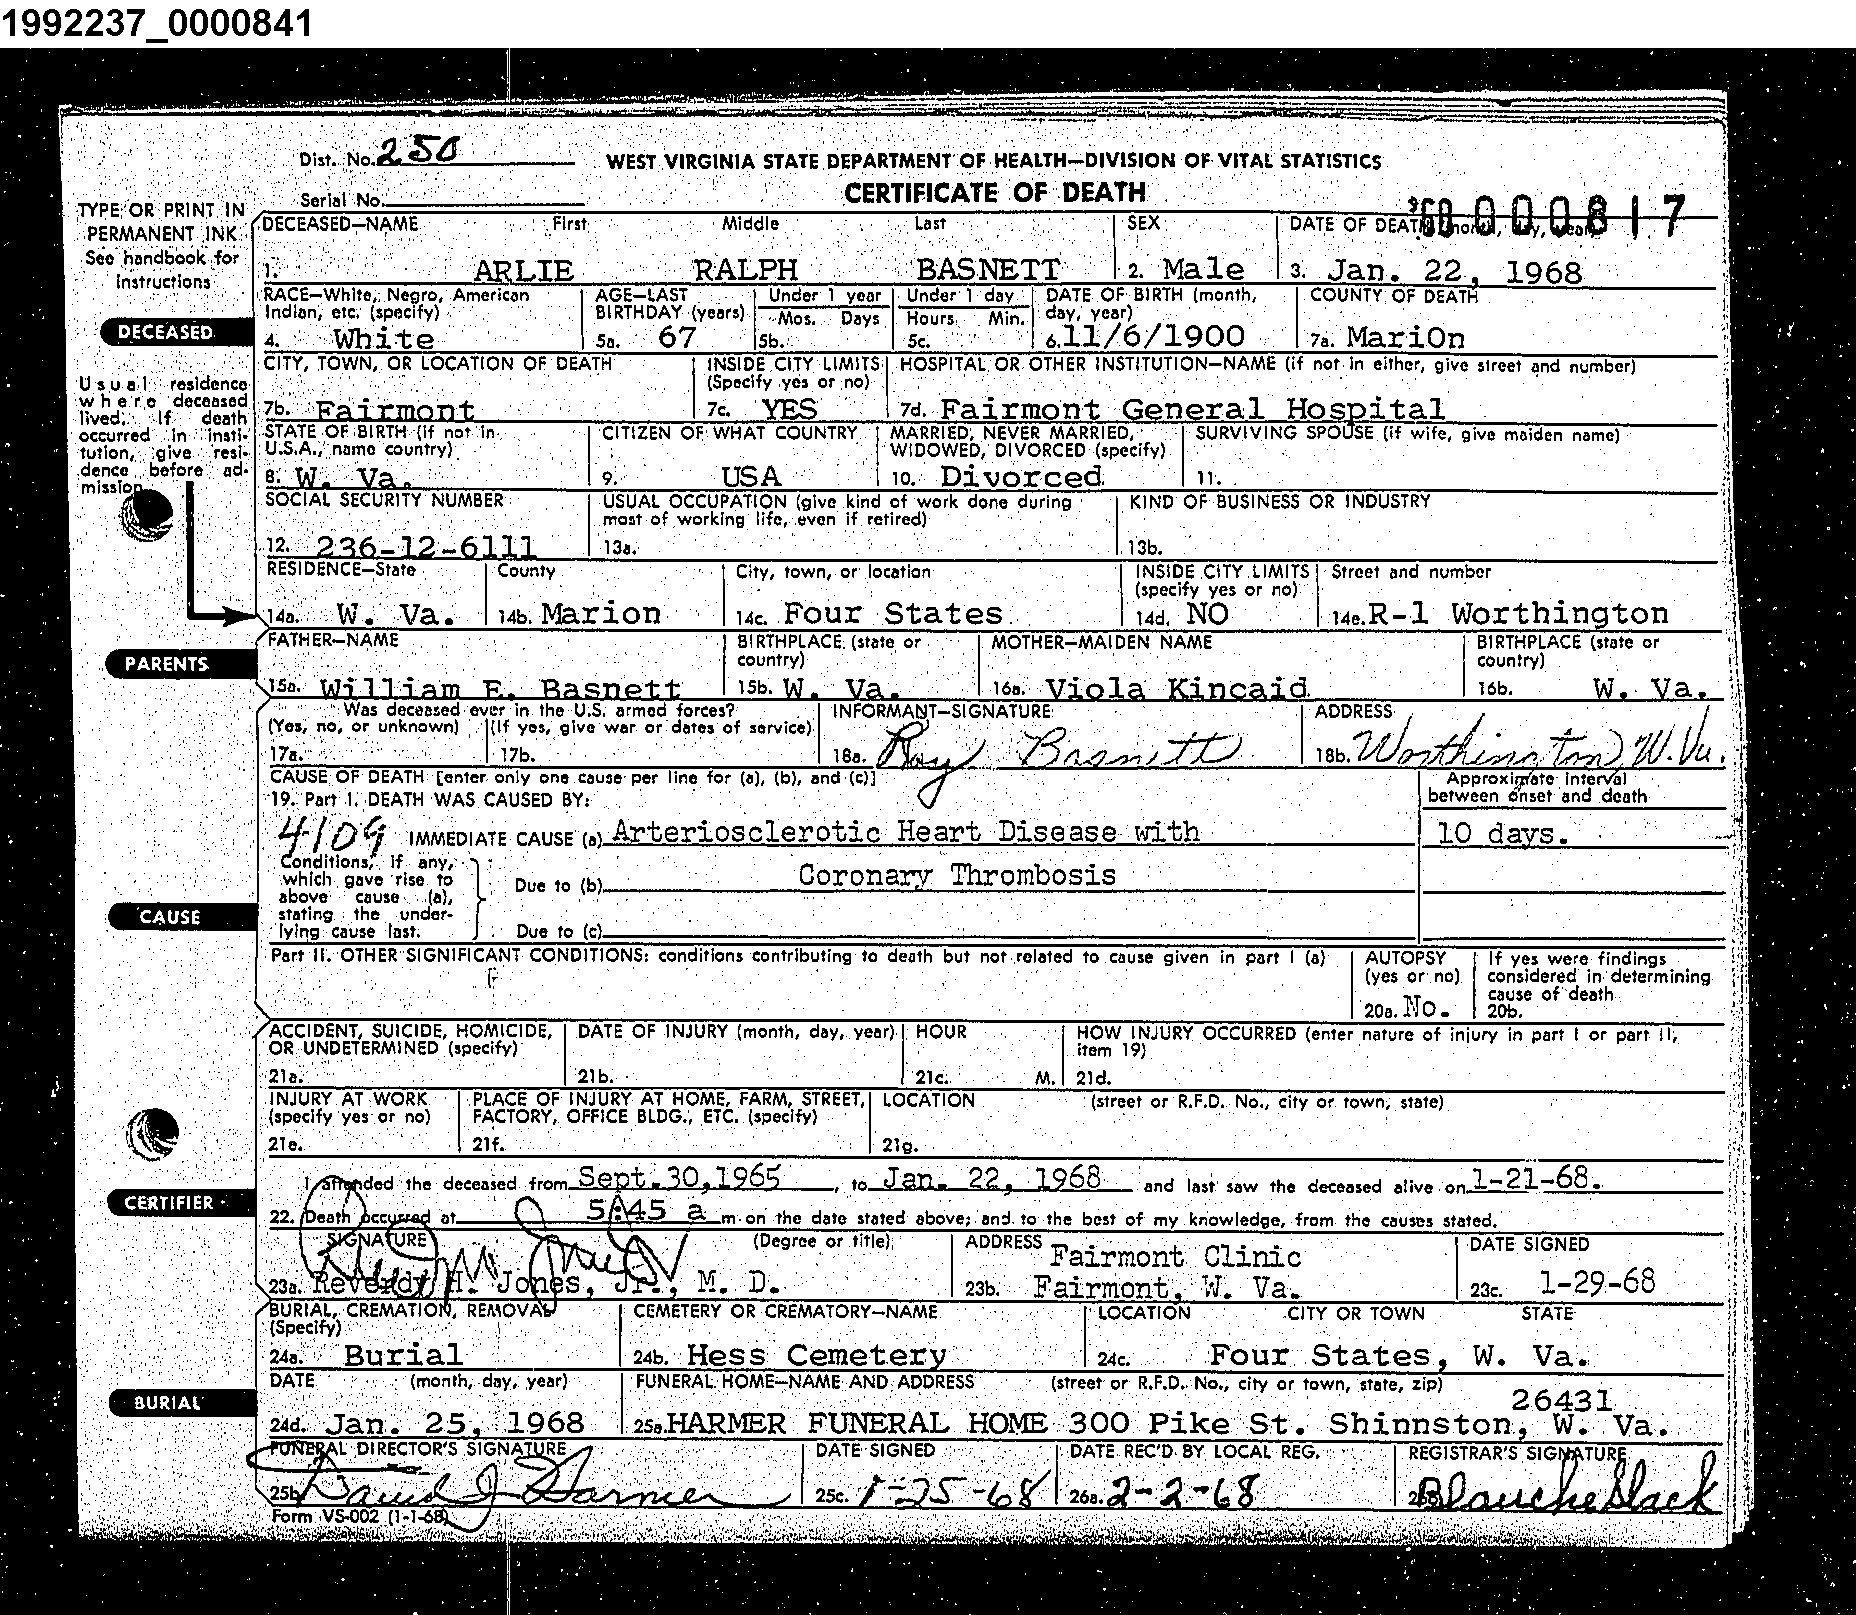 1992237_0000841
Dist. No. 250
WEST VIRGINIA STATE DEPARTMENT OF HEALTH—DIVISION OF VITAL STATISTICS
CERTIFICATE OF DEATH
Serial No.
000817
TYPE OR PRINT IN
PERMANENT INK
See handbook for
instructions
DECEASED—NAME First Middle Last SEX DATE OF DEATH (month, day, year)
1. ARLIE RALPH BASNETT 2. Male 3. Jan. 22, 1968
RACE—White, Negro, American Indian, etc. (specify)
4. White
AGE—LAST BIRTHDAY (years)
5a. 67
Under 1 year
Mos. Days
5b.
Under 1 day
Hours Min.
5c.
DATE OF BIRTH (month, day, year)
6. 11/6/1900
COUNTY OF DEATH
7a. MariOn
DECEASED
Usual residence
where deceased
lived. If death
occurred in insti-
tution, give resi-
dence before ad-
mission
CITY, TOWN, OR LOCATION OF DEATH
7b. Fairmont
INSIDE CITY LIMITS (Specify yes or no)
7c. YES
HOSPITAL OR OTHER INSTITUTION—NAME (if not in either, give street and number)
7d. Fairmont General Hospital
STATE OF BIRTH (if not in U.S.A., name country)
8. W. Va.
CITIZEN OF WHAT COUNTRY
9. USA
MARRIED, NEVER MARRIED, WIDOWED, DIVORCED (specify)
10. Divorced
SURVIVING SPOUSE (if wife, give maiden name)
11.
SOCIAL SECURITY NUMBER
12. 236-12-6111
USUAL OCCUPATION (give kind of work done during most of working life, even if retired)
13a.
KIND OF BUSINESS OR INDUSTRY
13b.
RESIDENCE—State
14a. W. Va.
County
14b. Marion
City, town, or location
14c. Four States
INSIDE CITY LIMITS (specify yes or no)
14d. NO
Street and number
14e. R-1 Worthington
PARENTS
FATHER—NAME
15a. William E. Basnett
BIRTHPLACE (state or country)
15b. W. Va.
MOTHER—MAIDEN NAME
16a. Viola Kincaid
BIRTHPLACE (state or country)
16b. W. Va.
Was deceased ever in the U.S. armed forces?
(Yes, no, or unknown) (If yes, give war or dates of service)
17a. 17b.
INFORMANT—SIGNATURE
18a. Ray Basnett
ADDRESS
18b. Worthington, W. Va.
CAUSE OF DEATH [enter only one cause per line for (a), (b), and (c)]
Approximate interval
between onset and death
19. Part I. DEATH WAS CAUSED BY:
4109 IMMEDIATE CAUSE (a) Arteriosclerotic Heart Disease with 10 days.
Conditions, if any,
which gave rise to
above cause (a),
stating the under-
lying cause last.
Due to (b) Coronary Thrombosis
Due to (c)
CAUSE
Part II. OTHER SIGNIFICANT CONDITIONS: conditions contributing to death but not related to cause given in part I (a)
AUTOPSY (yes or no)
20a. No.
If yes were findings considered in determining cause of death
20b.
ACCIDENT, SUICIDE, HOMICIDE, OR UNDETERMINED (specify)
21a.
DATE OF INJURY (month, day, year)
21b.
HOUR
21c. M.
HOW INJURY OCCURRED (enter nature of injury in part I or part II, item 19)
21d.
INJURY AT WORK (specify yes or no)
21e.
PLACE OF INJURY AT HOME, FARM, STREET, FACTORY, OFFICE BLDG., ETC. (specify)
21f.
LOCATION (street or R.F.D. No., city or town, state)
21g.
CERTIFIER
I attended the deceased from Sept. 30, 1965, to Jan. 22, 1968 and last saw the deceased alive on 1-21-68.
22. Death occurred at 5:45 a m on the date stated above; and to the best of my knowledge, from the causes stated.
SIGNATURE (Degree or title)
23a. Reverdy H. Jones, Jr., M. D.
ADDRESS
Fairmont Clinic
23b. Fairmont, W. Va.
DATE SIGNED
23c. 1-29-68
BURIAL, CREMATION, REMOVAL (Specify)
24a. Burial
CEMETERY OR CREMATORY—NAME
24b. Hess Cemetery
LOCATION CITY OR TOWN STATE
24c. Four States, W. Va.
BURIAL
DATE (month, day, year)
24d. Jan. 25, 1968
FUNERAL HOME—NAME AND ADDRESS (street or R.F.D. No., city or town, state, zip)
26431
25a. HARMER FUNERAL HOME 300 Pike St. Shinnston, W. Va.
FUNERAL DIRECTOR'S SIGNATURE
25b. David J Harmer
DATE SIGNED
25c. 1-25-68
DATE REC'D BY LOCAL REG.
26a. 2-2-68
REGISTRAR'S SIGNATURE
26b. Blanche Slack
Form VS-002 (1-1-68)